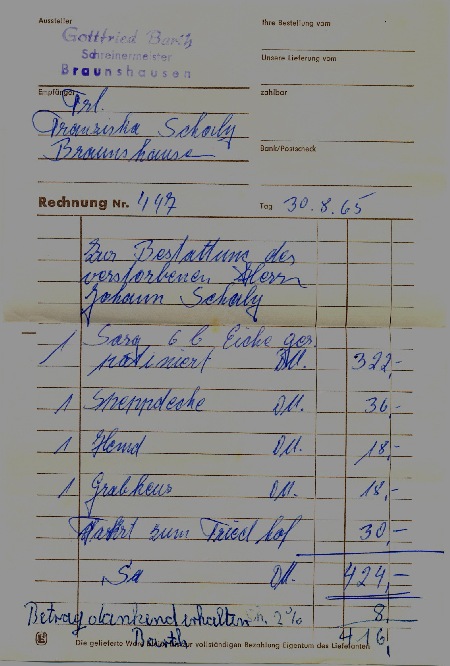 Aussteller
Gottfried Barth
Schreinermeister
Braunshausen
Ihre Bestellung vom
Unsere Lieferung vom
Empfänger
zahlbar
Frl.
Franziska Schaly
Braunshausen
Bank/Postscheck
Rechnung Nr. 447
Tag 30.8.65
Zur Bestattung des
verstorbenen Herrn
Johann Schaly
1 Sarg 6 b Eiche ger.
patiniert DM. 322,-
1 Steppdecke DM. 36,-
1 Hemd DM. 18,-
1 Grabkreuz DM. 18,-
Fahrt zum Friedhof 30,-
Sa DM. 424,-
Betrag dankend erhalten 2% 8
Barth 416,
Die gelieferte Ware bleibt bis zur vollständigen Bezahlung Eigentum des Lieferanten